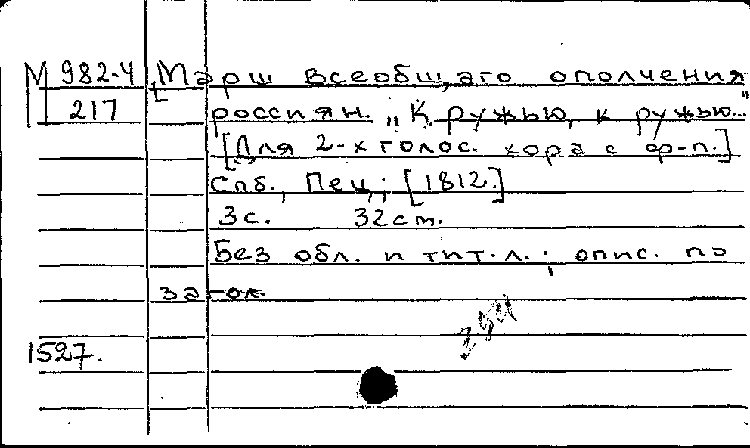 М 982-4 [Марш всеобщаго ополчения
217 россиян. „К ружью, к ружью..."
[Для 2-х голос. хора с ф-п.]
Спб., Пец,; [1812.]
3с. 32 ст.
Без обл. и тит. л.; опис. по
загол.
254
1527.